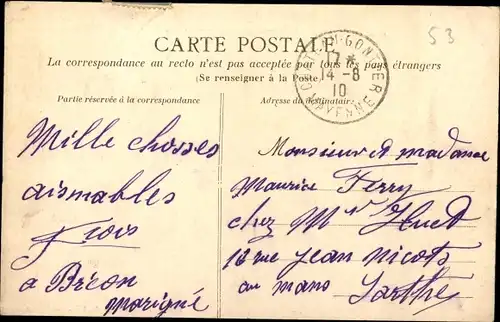 CARTE POSTALE
La correspondance au recto n'est pas acceptée par tous les pays étrangers
(Se renseigner à la Poste)
Partie réservée à la correspondance
Adresse du destinataire
GONTIER
7*
14-8
10
MAYENNE
53
Mille chosses
aismables
a Bréon
Marigné
Monsieur et madame
Maurice Ferry
chez Mr Huet
rue jean nicots
au mans Sarthe